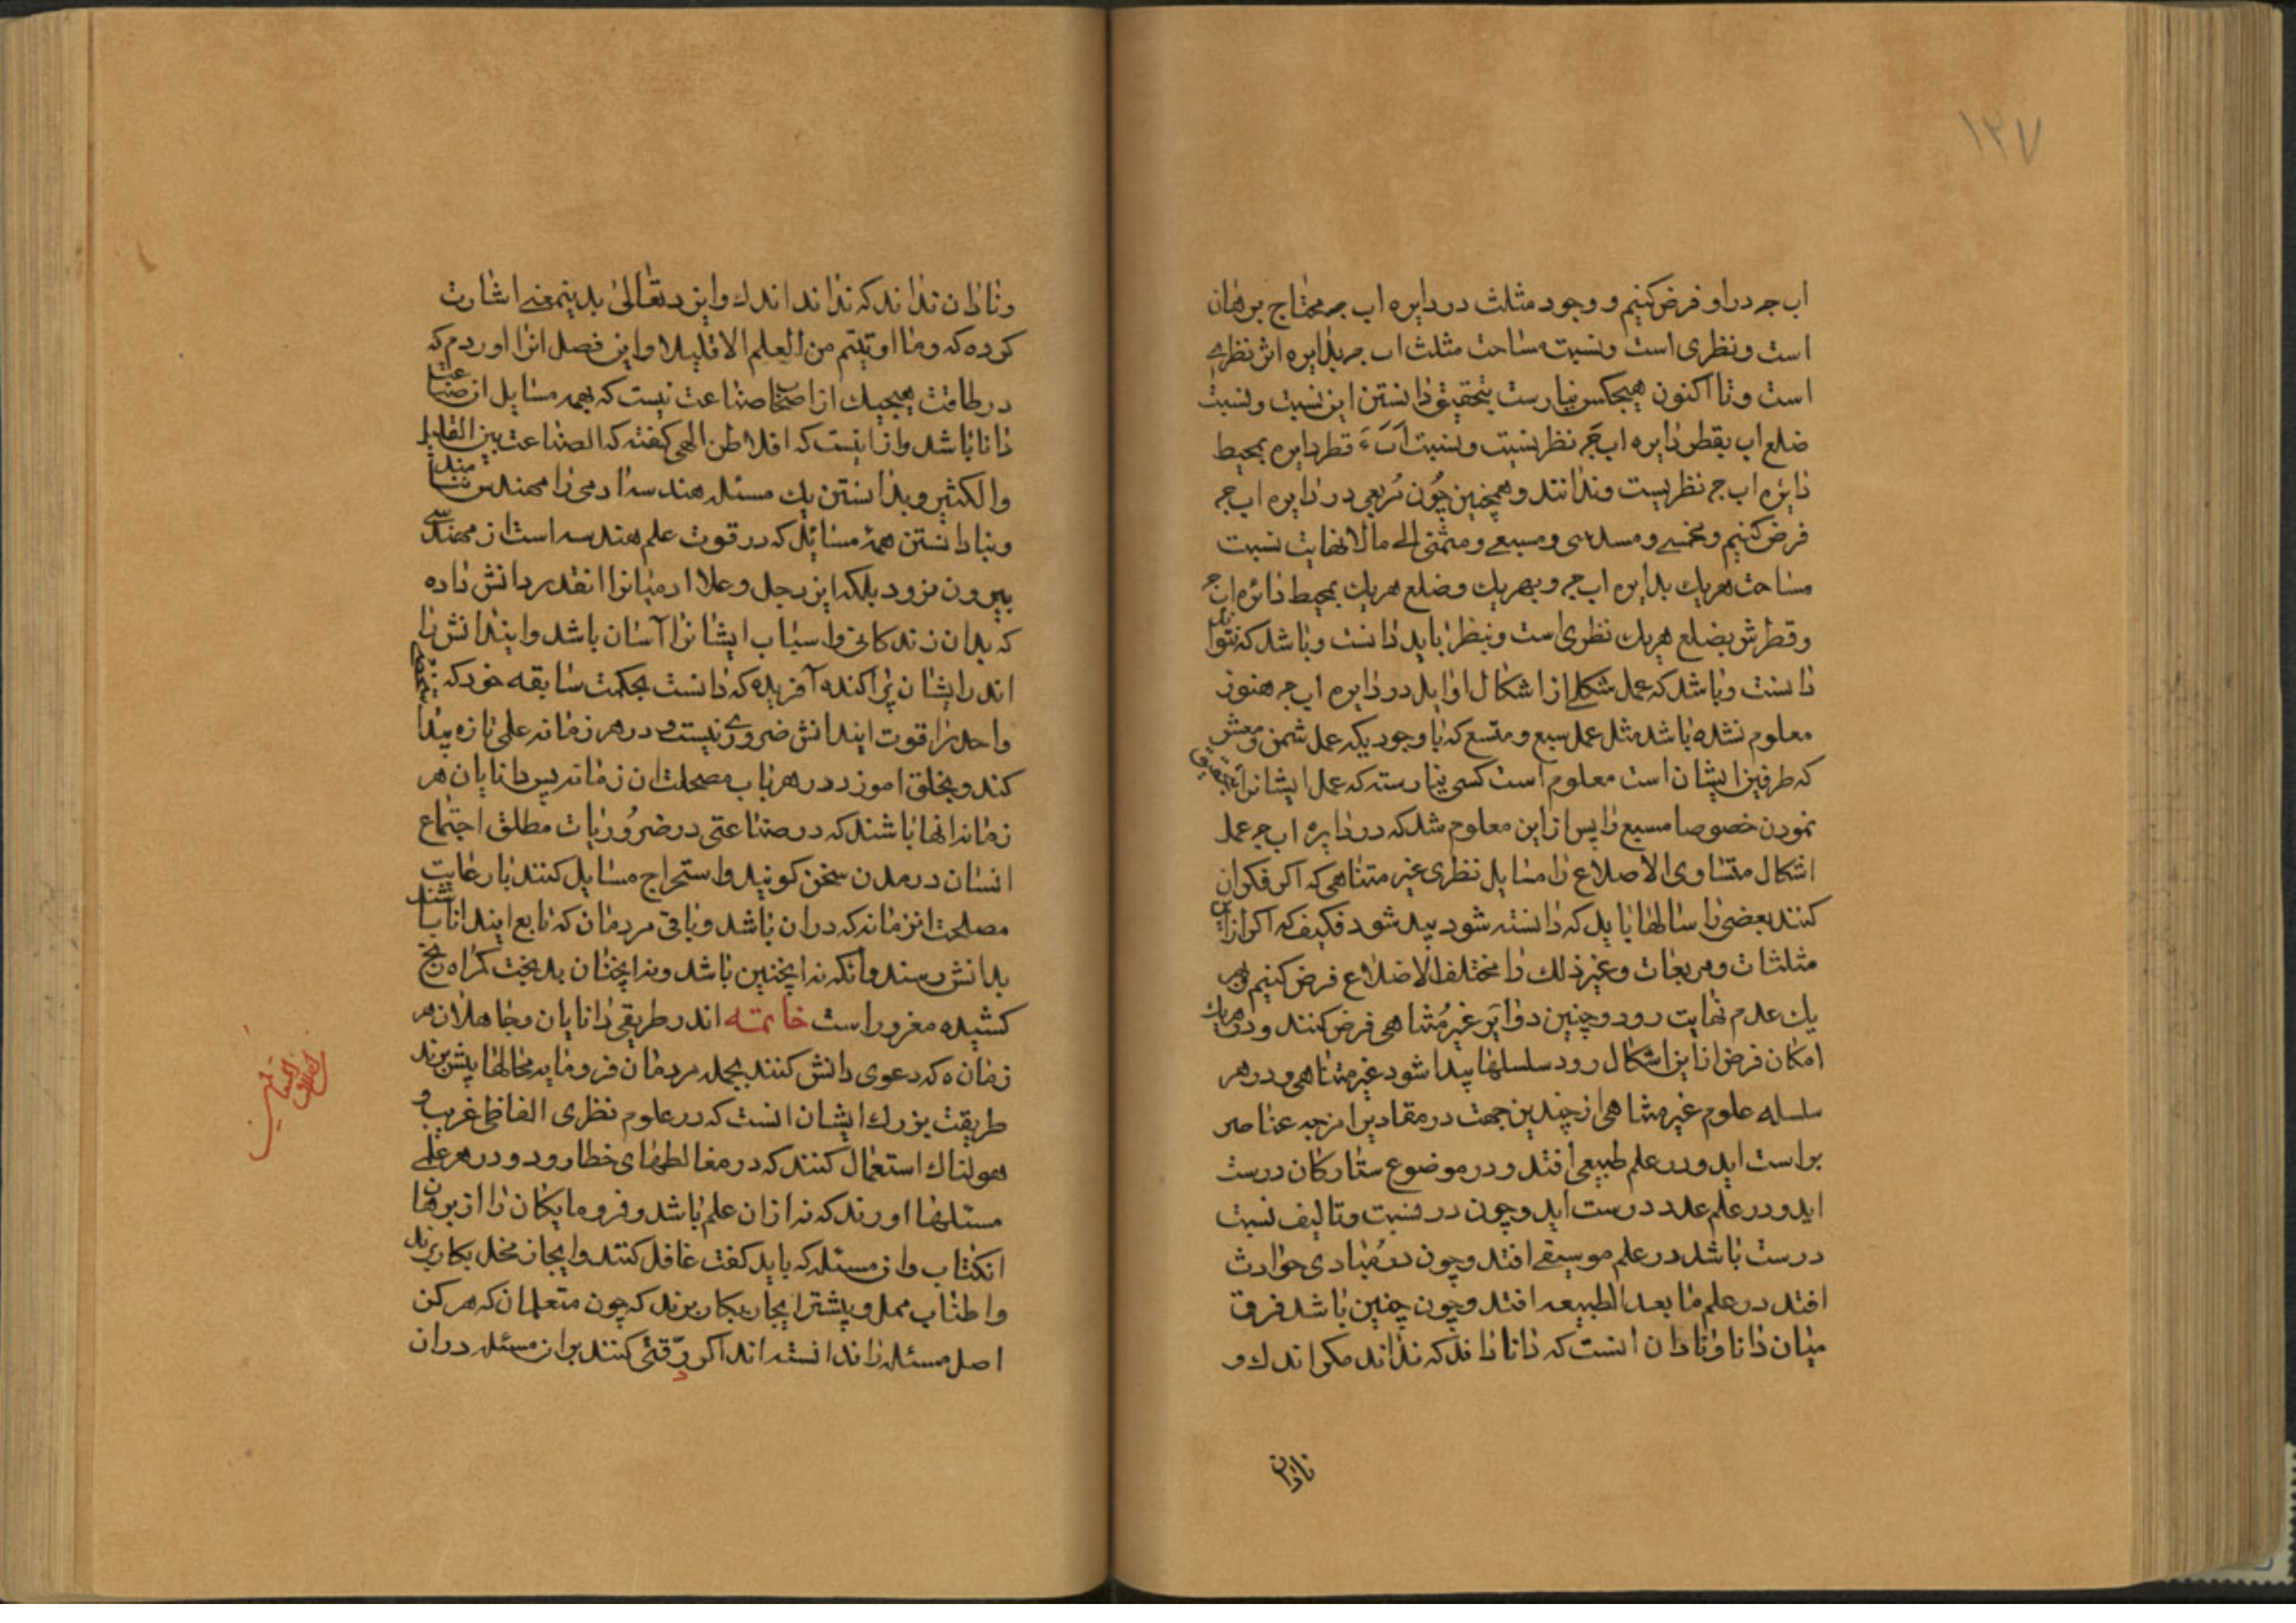 ۱۲۷
اب جه دراو فرض کنیم و وجود مثلث در دایره اب جه محتاج برهان
است و نظری است و نسبت مساحت مثلث اب جه بدایره اش نظری
است و تا اکنون هیچکس نیارست بتحقیق دانستن این نسبت و نسبت
ضلع اب بقطر دایره اب جه نظریست و نسبت قطر دایره بمحیط
دایره اب جه نظریست وندانند و همچنین چون مربعی در دایره اب جه
فرض کنیم و مخمسی و مسدسی و مسبعی و مثمنی الی مالانهایت نسبت
مساحت هریک بدایره اب جه و بهریک وضلع هریک بمحیط دائره اب جه
و قطرش بضلع هریک نظری است و بنظر باید دانست و باشد که نتوان
دانست و باشد که عمل شکلی از اشکال اوایل در دایره اب جه هنوز
معلوم نشده باشد مثل عمل سبع و متسع که باوجودیکه عمل ثمن و معشر
که طرفین ایشان است معلوم است کسی نیارسته که عمل ایشانرا بتحقیق
نمودن خصوصا مسبع را پس ازاین معلوم شد که در دایره اب جه عمل
اشکال متساوی الاضلاع را مسایل نظری غیر متناهی که اکر فکر ان
کنند بعضی را سالها باید که دانسته شود پید شود فکیف که اکر ازاین
مثلثات و مربعات و غیر ذلک را مختلف الاضلاع فرض کنیم بهر
یک عدم نهایت رود و چنین دوایر غیر متناهی فرض کنند و در هریک
امکان فرض از این اشکال رود سلسلها پیدا شود غیر متناهی و در هر
سلسله علوم غیر متناهی از چندین جهت در مقادیر از جه عناصر
براست اید و در علم طبیعی افتد و در موضوع ستارکان درست
اید و در علم عدد درست اید و چون در نسبت و تالیف نسبت
درست باشد در علم موسیقی افتد و چون در مبادی حوادث
افتد در علم ما بعد الطبیعه افتد و چون چنین باشد فرق
میان دانا و نادان انست که دانا داند که نداند مکر اندک و
نادان
و نادان نداند که نداند اندک و ایزد تعالی بدینمعنی اشارت
کرده که وما اوتیتم من العلم الا قلیلا و این فصل انرا اوردم که
در طاقت هیچیک از اصحاب صناعت نیست که بهمه مسایل ان صناعت
دانا باشد و ازاینست که افلاطن الهی کفته که الصناعت بین القلیل
والکثیر و بدانستن یک مسئله هندسه ادمی را مهندس
و بنادانستن همۀ مسائل که در قوت علم هندسه است از مهندسی
بیرون نرود بلکه ایزد جل و علا ادمیانرا انقدر دانش داده
که بدان زندکانی و اسباب ایشانرا آسان باشد و ایندانش را
اندر ایشان پراکنده آفریده که دانست بحکمت سابقه خود که
واحد را قوت ایندانش ضروری نیست و در هر زمانه علمی تازه پیدا
کند و بخلق اموزد در هر باب مصلحت ان زمانه پس دانایان هر
زمانه انها باشند که در صناعتی در ضروریات مطلق اجتماع
انسان در مدن سخن کویند و استخراج مسایل کنند بارعایت
مصلحت انزمانه که دران باشد و باقی مردمان که تابع ایندانا باشند
بدانش رسند وانکه نه اینچنین باشد و نه اینچنان بدبخت کمراه رنج
کشیده مغرور است خاتمته اندر طریقی دانایان و جاهلان هر
زمان که دعوی دانش کنند بجمله مردمان فرومایه محالها پیش برند
طریقت بزرک ایشان انست که در علوم نظری الفاظ غریب و
هولناک استعمال کنند که در مغالطهای خطا رود و در هر علمی
مسئلها اورند که نه ازان علم باشد و فرومایکان را از برهان
انکتاب و ان مسئله که باید کفت غافل کنند و ایجاز مخل بکار برند
و اطناب ممل و پیشتر ایجاز بکار برند که چون متعلمان که هرکز
اصل مسئله را ندانسته اند اکر دقتی کنند بر ان مسئله دران